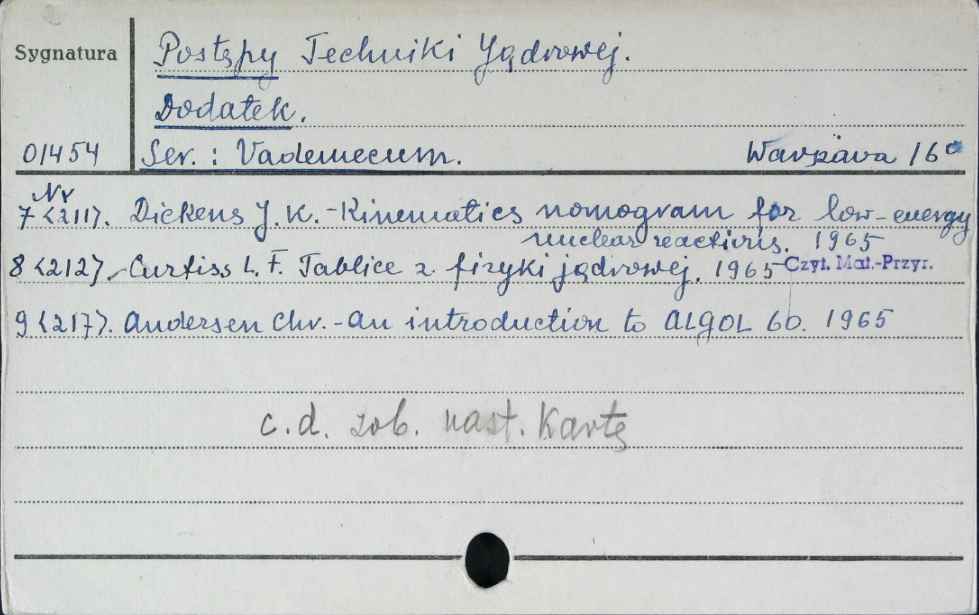 Sygnatura
Postępy Techniki Jądrowej.
Dodatek.
01454 Ser.: Vademecum. Warszawa 16°
Nr
7<211>. Dickens J. K. - Kinematics nomogram for low-energy
nuclear reactions. 1965
8<212>. Curtiss L. F. Tablice z fizyki jądrowej. 1965 Czyt. Mat.-Przyr.
9<217>. Andersen Chr. - An introduction to ALGOL 60. 1965
c.d. zob. nast. kartę